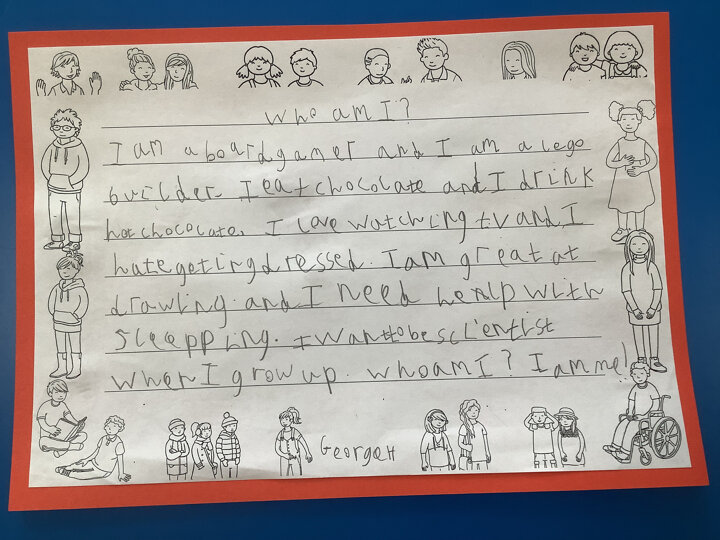 Who am I?
I am a boardgamer and I am a lego
builder. I eat chocolate and I drink
hotchococate. I love watching tv and I
hate geting dressed. I am great at
drawling. and I need henlp with
sleepping. I want to be sclientist
when I grow up. who am I? I am me!
George H